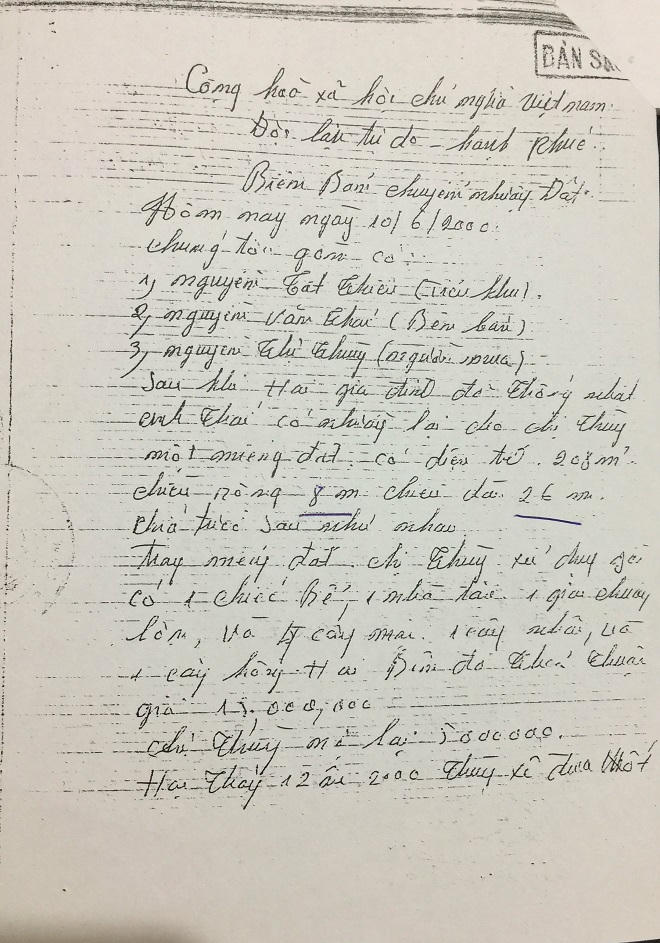 BẢN SA
Cộng hoà xã hội chủ nghĩa Việt nam
Độc lập tự do - hạnh phúc
Biên Bản chuyển nhượng Đất
Hôm nay ngày 10/6/2000
chúng tôi gồm có:
1, nguyễn Tất Thiều (Tiểu khu).
2, nguyễn Văn Thái (Bên bán)
3, nguyễn Thị Thuỷ (người mua)
Sau khi Hai gia đình đã thống nhất
anh Thái có nhượng lại cho chị Thuỷ
một miếng đất có diện tí 208m²
chiều rộng 8m chiều dài 26 m.
phía trước sau như nhau
tray miếng đất chị Thuỷ sử dụng
có 1 chiếc Bể, 1 nhà 1 gian chuồng
lợn, và 4 cây mai 1 cây nhãn, và
1 cây hồng Hai Bên đã thoả thuận
giá 15.000,000
chị Thuỷ nợ lại 5000000.
Hai Tháy 12 2000 Thuỷ sẽ đưa Nốt